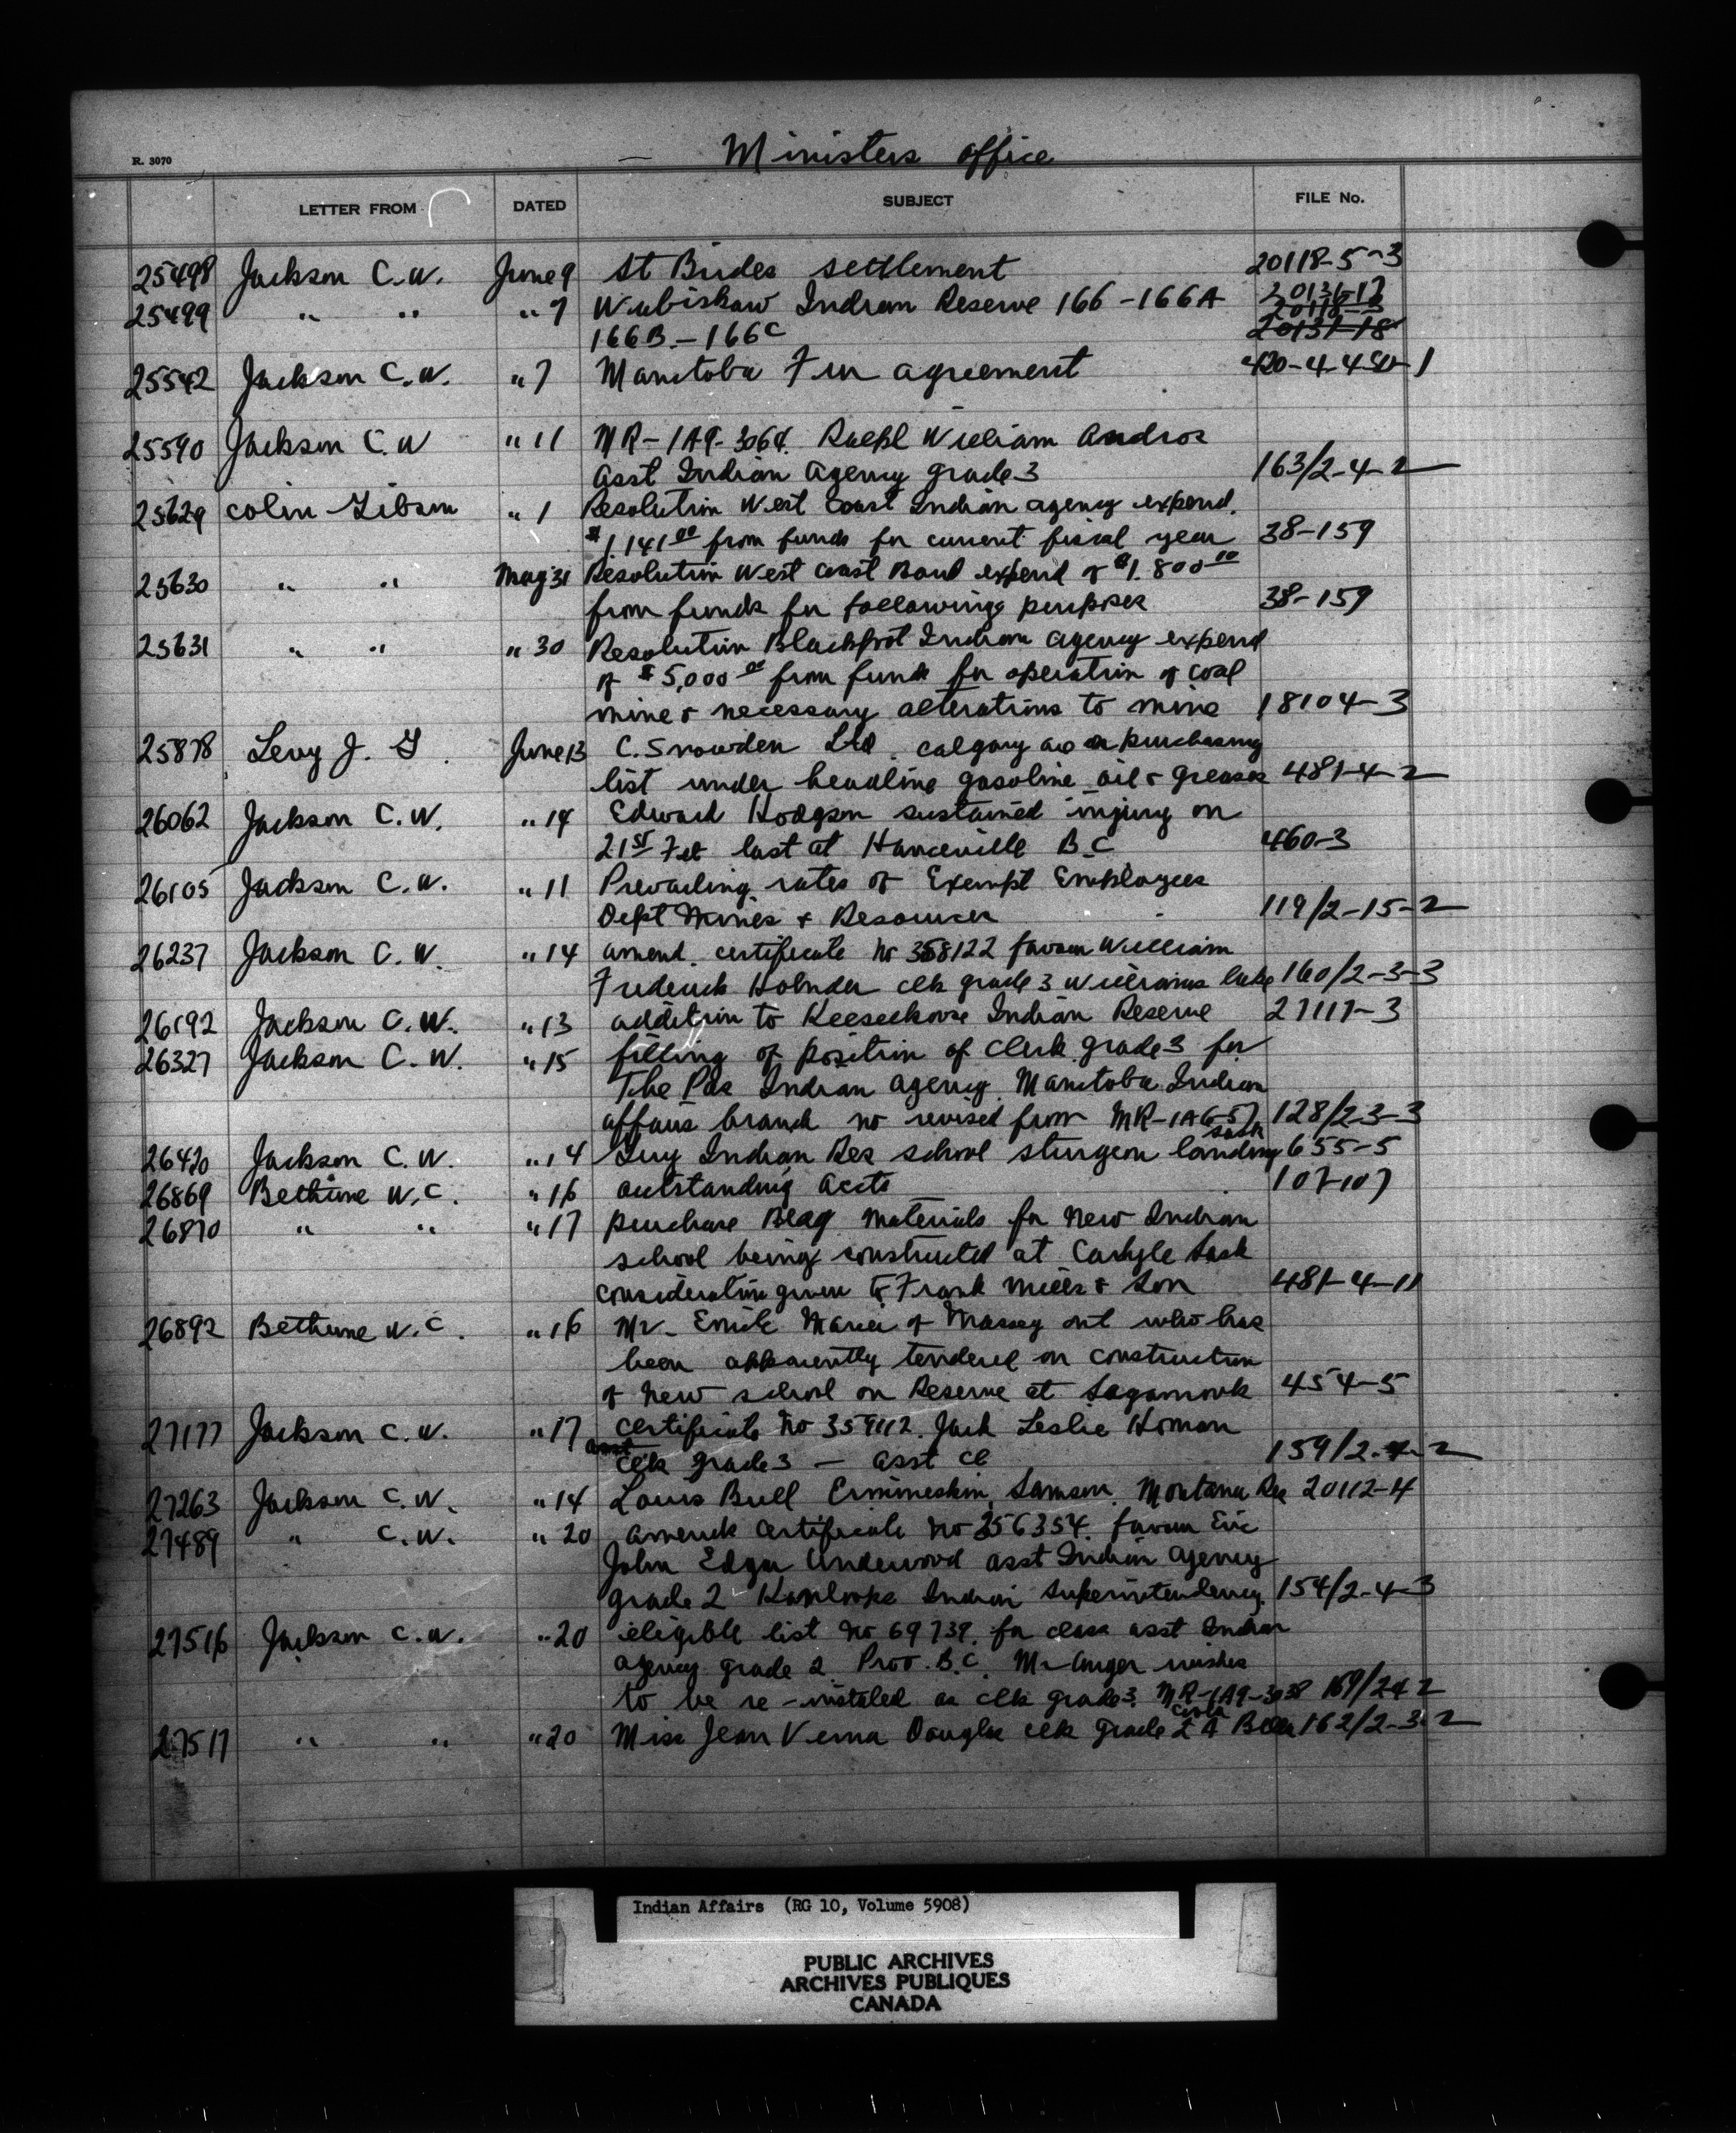 R. 3070
Ministers office
LETTER FROM DATED SUBJECT FILE No.
25498 Jackson C.W. June 9 St Brides settlement 20118-5-3
25499 " " " 7 Wabiskaw Indian Reserve 166-166A 20136-17
20118-3
166B-166C 20137-18
25542 Jackson C.W. " 7 Manitoba Fur agreement 420-4-4
25590 Jackson C.W " 11 MR-1A9-3064. Ralph William Andros
Asst Indian Agency grade 3 163/2-4-2
25629 Colin Gibson " 1 Resolution West Coast Indian agency expend.
$1,141 00 from funds for current fiscal year 38-159
25630 " " May 31 Resolution West Coast Band expend of $1.800 00
from funds for following purposes 38-159
25631 " " " 30 Resolution Blackfoot Indian agency expend
of $5,000 00 from funds for operation of coal
mine & necessary alterations to mine 18104-3
25878 Levy J. G. June 13 C. Snowden Ltd. Calgary as a purchasing
list under headline gasoline oil & greases 481-4-2
26062 Jackson C.W. " 14 Edward Hodgson sustained injury on
21st Feb last at Hanceville B.C 460-3
26105 Jackson C.W. " 11 Prevailing rates of Exempt Employees
Dept Mines & Resources 119/2-15-2
26237 Jackson C.W. " 14 amend. certificate no 358122 favour William
Frederick clk grade 3 Williams lake 160/2-3-3
26192 Jackson C.W. " 13 addition to Keeseekoose Indian Reserve 27117-3
26327 Jackson C.W. " 15 filling of position of clerk grade 3 for
The Pas Indian agency. Manitoba Indian
affairs branch no revised from MR-1AG-57 128/2-3-3
sask
26420 Jackson C.W. " 14 Guy Indian Res school sturgeon landing 655-5
26869 Bethune W.C. " 16 outstanding accts 107-107
26870 " " " 17 purchase Bldg materials for New Indian
school being constructed at Carlyle Sask
consideration given to Frank Mills & Son 481-4-11
26892 Bethune W.C. " 16 Mr. Emile of Massey ont who has
been apparently tendered on construction
of New school on Reserve at Sagamook 454-5
27177 Jackson C.W. " 17 certificate no 359112. Jack Leslie Homan
asst
clk grade 3 — asst cl 159/2-4-2
27263 Jackson C.W. " 14 Louis Bull Ermineskin, Samson, Montana Res 20112-4
27489 " C.W. " 20 amend certificate no 356354. favour Eric
John Edgar Underwood asst Indian agency
grade 2 Kamloops Indian Superintendency 154/2-4-3
27516 Jackson C.W. " 20 eligible list no 69739. for class asst Indian
agency grade 2 Prov. B.C. Mr Anger wishes
to be re-instated as clk grade 3. MR-1A9-3038 169/2-4-2
27517 " " " 20 Miss Jean Verna Douglas clk grade 2 A Bella 162/2-3-2
Indian Affairs (RG 10, Volume 5908)
PUBLIC ARCHIVES
ARCHIVES PUBLIQUES
CANADA